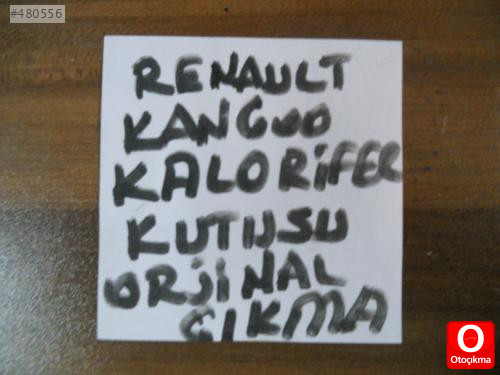 #480556
RENAULT
KANGOO
KALORİFER
KUTUSU
ORJİNAL
ÇIKMA
O
Otoçıkma